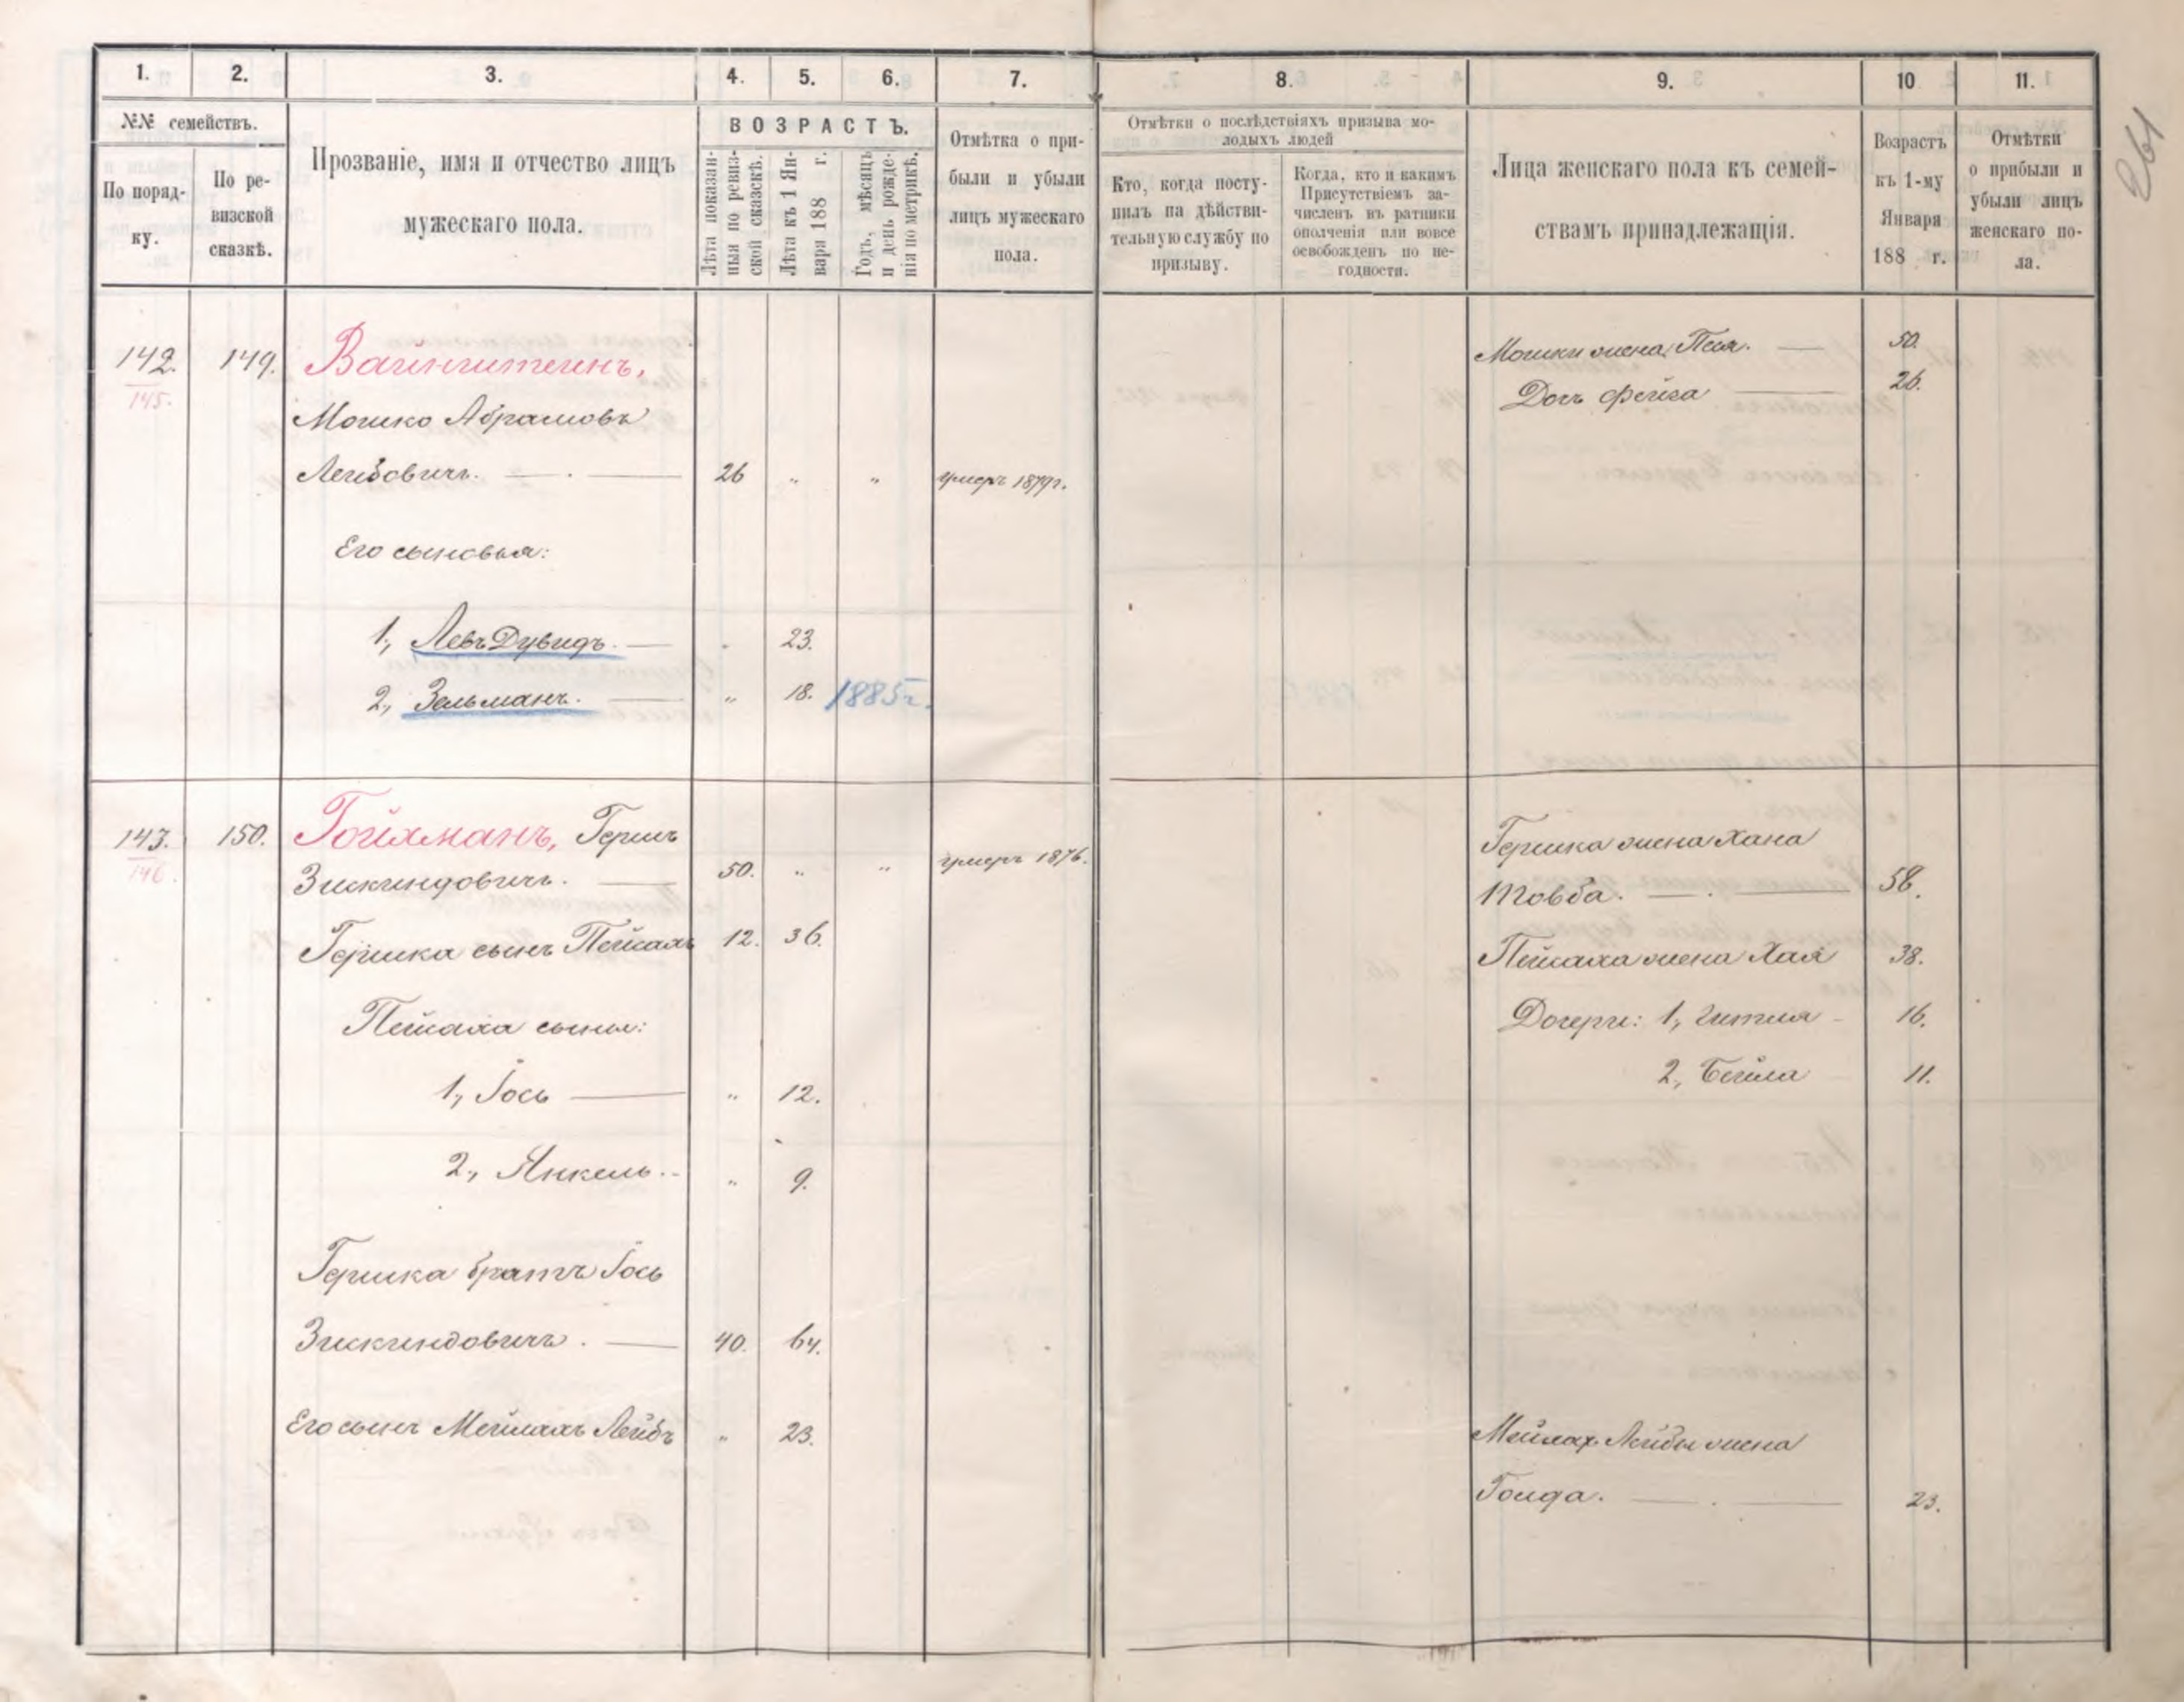 1. 2. 3. 4. 5. 6. 7. 8. 9. 10 11.
№№ семействъ.
По поряд-
ку.
По ре-
визской
сказкѣ.
Прозваніе, имя и отчество лицъ
мужескаго пола.
ВОЗРАСТЪ.
Лѣта показан-
ныя по ревиз-
ской сказкѣ.
Лѣта къ 1 Ян-
варя 188 г.
Годъ, мѣсяцъ
и день рожде-
нія по метрикѣ.
Отмѣтка о при-
были и убыли
лицъ мужескаго
пола.
Отмѣтки о послѣдствіяхъ призыва мо-
лодыхъ людей
Кто, когда посту-
пилъ на дѣйстви-
тельную службу по
призыву.
Когда, кто и какимъ
Присутствіемъ за-
численъ въ ратники
ополченія или вовсе
освобожденъ по не-
годности.
Лица женскаго пола къ семей-
ствамъ принадлежащія.
Возрастъ
къ 1-му
Января
188 г.
Отмѣтки
о прибыли и
убыли лицъ
женскаго по-
ла.
261
142. 149. Вайнштейнъ,
145.
Мошко Абрамовъ
Лейбовичъ. 26 " " умеръ 1879г.
Его сыновья:
1, Левъ Дувидъ. " 23.
2, Зельманъ. " 18. 1885г.
Мошки жена Песя. 50.
Дочь Фейга 26.
143. 150. Гойхманъ, Гершъ
146.
Зискиндовичъ. 50. " " умеръ 1876.
Гершка сынъ Пейсахъ 12. 36.
Пейсаха сыны:
1, Іось " 12.
2, Янкель. " 9.
Гершка братъ Іось
Зискиндовичъ. 40. 64.
Его сынъ Мейлахъ Лейбъ " 23.
Гершка жена Хана
Товба. 58.
Пейсаха жена Хая 38.
Дочери: 1, Гитля 16.
2, Бейла 11.
Мейлах Лейбы жена
Голда. 23.